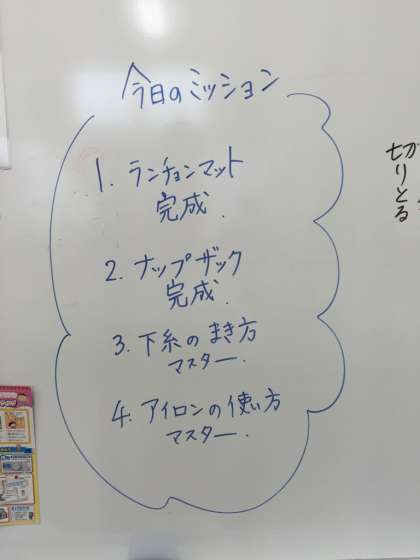 今日のミッション
1. ランチョンマット
完成.
2. ナップザック
完成.
3. 下糸のまき方
マスター.
4. アイロンの使い方
マスター.
切りとる